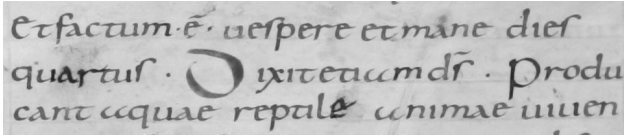 Et factum · ē · uespere et mane dies
quartus · Dixit etiam ds̄ · Produ
cant aquae reptile animae uiuen